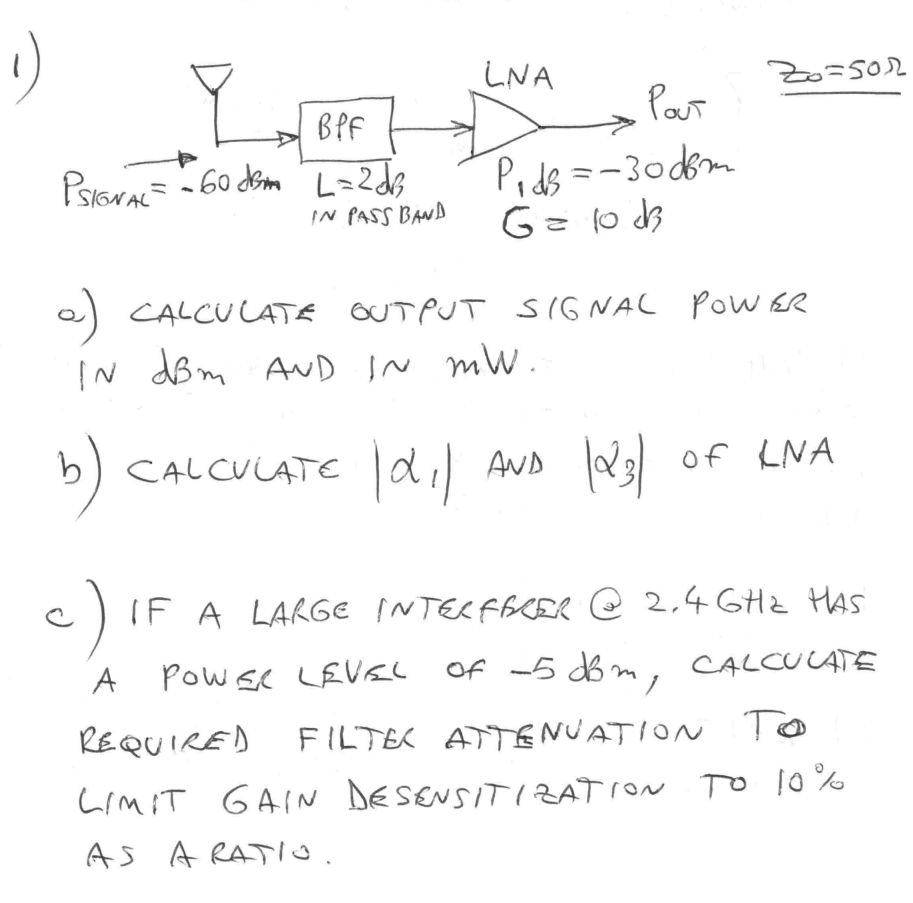 1)
LNA
Z₀=50Ω
BPF
Pout
PSIGNAL = -60 dBm
L=2dB
IN PASSBAND
P1dB = -30 dBm
G = 10 dB
a) CALCULATE OUTPUT SIGNAL POWER
IN dBm AND IN mW.
b) CALCULATE |α₁| AND |α₃| OF LNA
c) IF A LARGE INTERFERER @ 2.4 GHz HAS
A POWER LEVEL OF -5 dBm, CALCULATE
REQUIRED FILTER ATTENUATION TO
LIMIT GAIN DESENSITIZATION TO 10%
AS A RATIO.